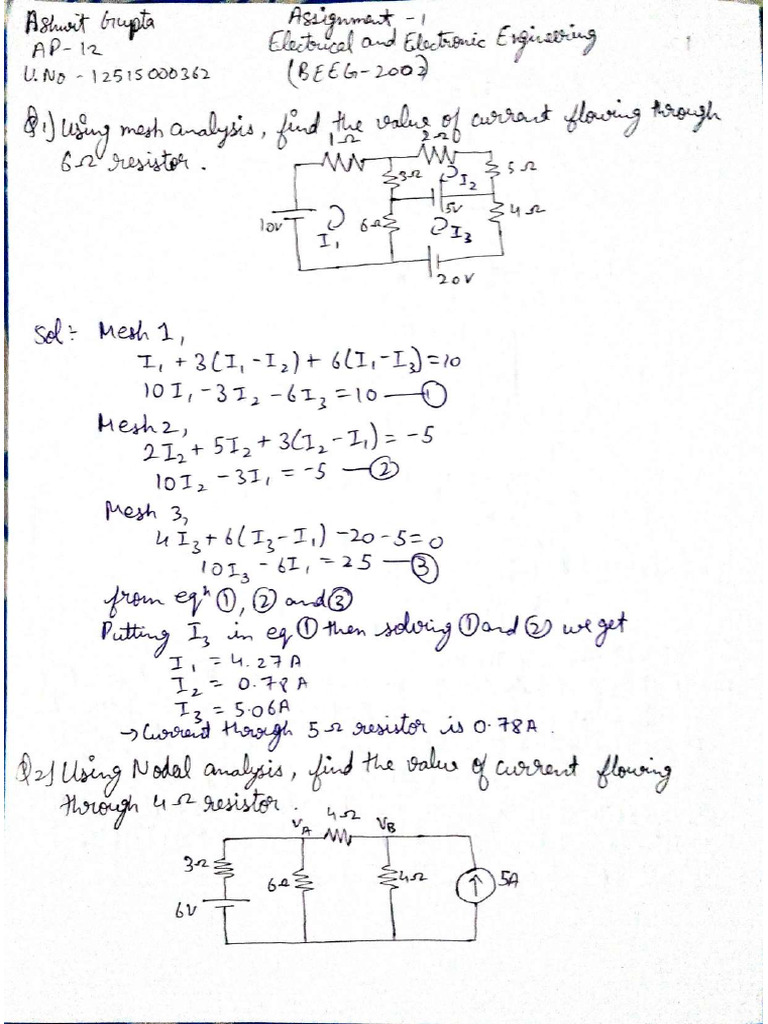 Ashwit Gupta
Assignment - 1
AP-12
Electrical and Electronic Engineering
U.No - 12515000362
(BEEG-2002)
1
Q1) Using mesh analysis, find the value of current flowing through
6Ω resistor.
1Ω
2Ω
3Ω
I2
5Ω
10V
I1
6Ω
5V
I3
4Ω
20V
Sol: Mesh 1,
I1 + 3(I1 - I2) + 6(I1 - I3) = 10
10I1 - 3I2 - 6I3 = 10 — ①
Mesh 2,
2I2 + 5I2 + 3(I2 - I1) = -5
10I2 - 3I1 = -5 — ②
Mesh 3,
4I3 + 6(I3 - I1) - 20 - 5 = 0
10I3 - 6I1 = 25 — ③
from eqn ①, ② and ③
Putting I3 in eq ① then solving ① and ② we get
I1 = 4.27A
I2 = 0.78A
I3 = 5.06A
→ Current through 5Ω resistor is 0.78A.
Q2) Using Nodal analysis, find the value of current flowing
through 4Ω resistor.
VA
4Ω
VB
3Ω
6Ω
4Ω
5A
6V